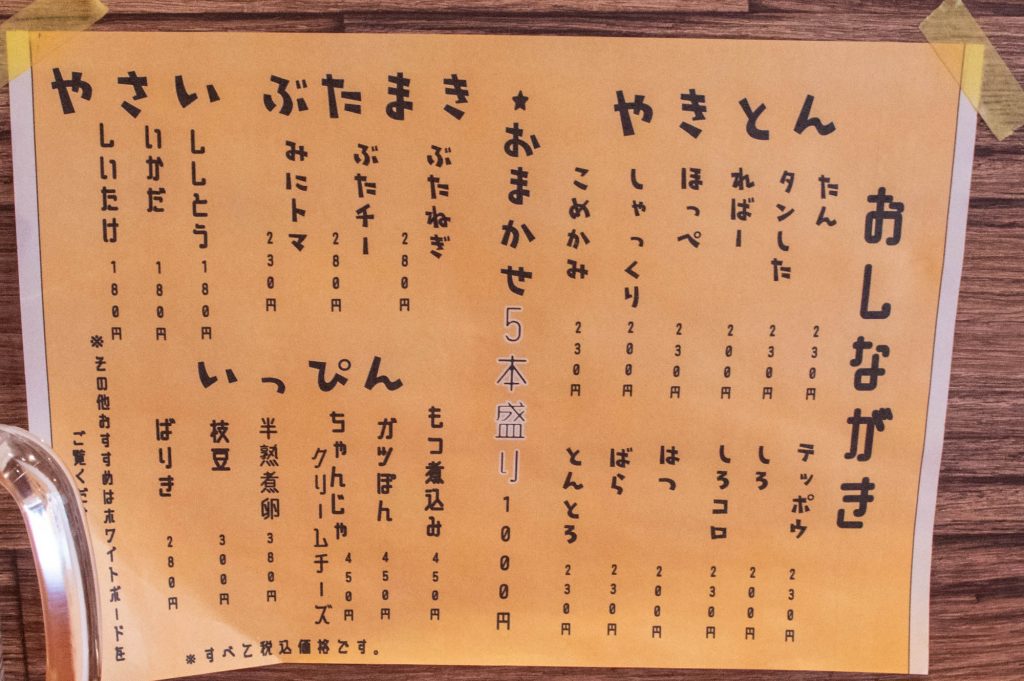 おしながき
やきとん
たん 230円
タンした 230円
ればー 200円
ほっぺ 230円
しゃっくり 200円
こめかみ 230円
テッポウ 230円
しろ 200円
しろコロ 230円
はつ 200円
ばら 230円
とんとろ 230円
★おまかせ5本盛り1000円
ぶたまき
ぶたねぎ 280円
ぶたチー 280円
みにトマ 230円
やさい
ししとう 180円
いかだ 180円
しいたけ 180円
いっぴん
モコ煮込み 450円
ガツぽん 450円
ちゃんじゃ
クリームチーズ 450円
半熟煮卵 380円
枝豆 300円
ばりき 280円
※その他おすすめはホワイトボードを
ご覧くだ
※すべて税込価格です。